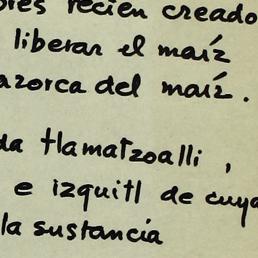 res recién creado
liberar el maíz
azorca del maíz.
da tlamatzoalli,
e izquitl de cuya
la sustancia